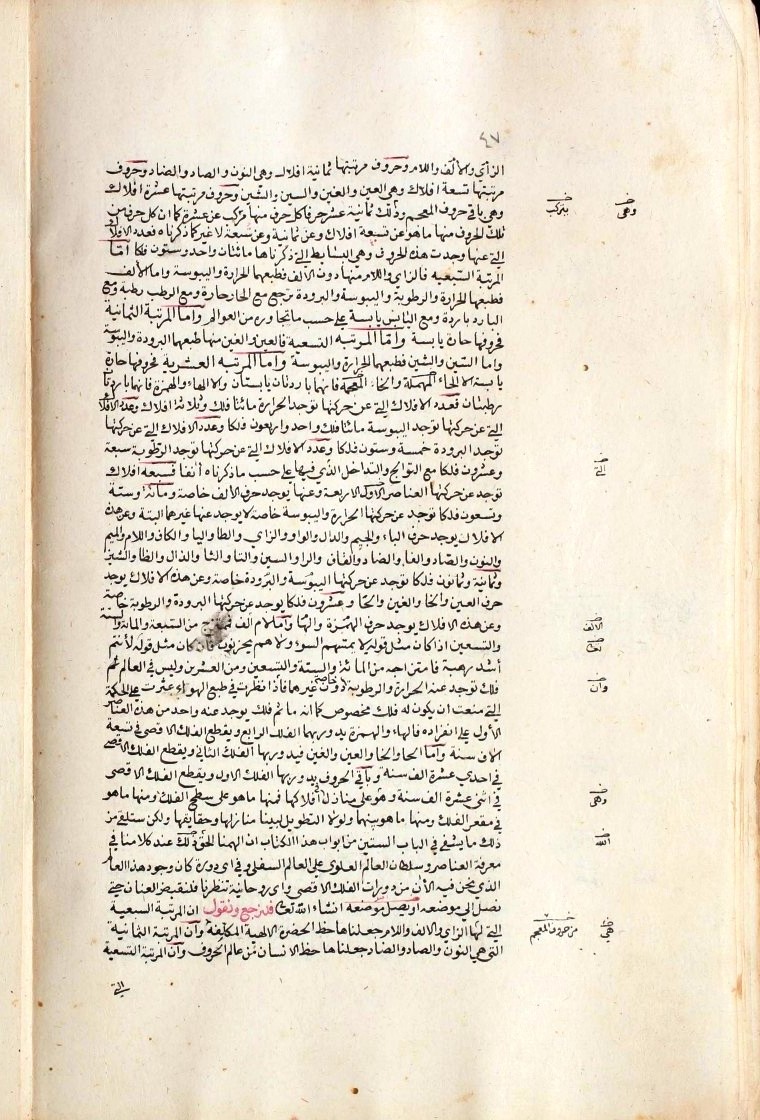 ٤٧
الزاي والالف واللام وحروف مرتبتها ثمانية افلاك وهى النون والصاد والضاد وحروف
مرتبتها تسعة افلاك وهى العين والغين والسين والشين وحروف مرتبتها عشرة افلاك
وهى باقى حروف المعجم وذلك ثمانية عشر حرفا كل حرف منها مركب عن عشرة كما ان كل حرف من
تلك الحروف منها ما هو عن تسعة افلاك وعن ثمانية وعن سبعة لا غير كما ذكرناه فعدد الافلاك
التى عنها وجدت هذه الحروف وهى البسايط التى ذكرناها مائتان واحد وستون فلكا امّا
المرتبة السبعيه فالزاي واللام منها دون الالف فطبعهما الحرارة واليبوسة واما الالف
فطبعها الحرارة والرطوبة واليبوسة والبرودة ترجع مع الحار حارة ومع الرطب رطبة ومع
البارد باردة ومع اليابس يابسة على حسب ما تجاوره من العوالم واما المرتبة الثمانية
فحروفها حارة يابسة وامّا المرتبه التسعية فالعين والغين منها طبعهما البرودة واليبوسة
واما السّين والشين فطبعهما الحرارة واليبوسة وامّا المرتبه العشرية فحروفها حارة
يابسة الا الحاء المهملة والخاء المعجمة فانهما باردتان يابستان والا الهاء والهمزة فانهما باردتان
رطبتان فعدد الافلاك التى عن حركتها توجد الحرارة مائتا فلك وثلاثة افلاك وعدد الافلاك
التى عن حركتها توجد اليبوسة مائتا فلك واحد واربعون فلكا وعدد الافلاك التى عن حركتها
توجد البرودة خمسة وستون فلكا وعدد الافلاك التى عن حركتها توجد الرطوبة سبعة
وعشرون فلكا مع التوالج والتداخل الذي فيها على حسب ما ذكرناه آنفا فسبعة افلاك
توجد عن حركتها العناصر الاول الاربعة وعنها يوجد حرف الالف خاصة ومائة وستة
وتسعون فلكا توجد عن حركتها الحرارة واليبوسة خاصة لا يوجد عنها غيرهما البتة وعن هذه
الافلاك يوجد حرف الباء والجيم والدال والواو والزاي والطا واليا والكاف واللام والميم
والنون والصاد والفا والضاد والقاف والرا والسين والتا والثا والذال والظا والشين
وثمانية وثمانون فلكا توجد عن حركتها اليبوسة والبرودة خاصة وعن هذه الافلاك يوجد
حرف العين والحا والغين والخا وعشرون فلكا يوجد عن حركتها البرودة والرطوبة خاصة
وعن هذه الافلاك يوجد حرف الهمزة والها واما لام الف فممتزج من السبعة والمائة والستة
والتسعين اذا كان مثل قوله لا يمسّهم السوء ولا هم يحزنون فان كان مثل قوله لأنتم
أشد رهبة فامتزاجه من المائة والستة والتسعين ومن العشرين وليس في العالم ثم
فلك توجد عنه الحرارة والرطوبة خاصّة دون غيرهما فأذا نظرت في طبع الهواء عثرت على الحكمة
التى منعت ان يكون له فلك مخصوص كما انه ما ثم فلك يوجد عنه واحد من هذه العناصر
الأول على انفراده فالهاء والهمزة يدور بهما الفلك الرابع ويقطع الفلك الاقصى في تسعة
آلاف سنة وامّا الحا والخا والعين والغين فيدور بها الفلك الثاني ويقطع الفلك الاقصى
في احدى عشرة الف سنة وباقي الحروف يدور بها الفلك الاول ويقطع الفلك الاقصى
في اثنى عشرة الف سنة وهو على منازل أفلاكها فمنها ما هو على سطح الفلك ومنها ما هو
في مقعر الفلك ومنها ما هو بينهما ولولا التطويل لبينا منازلها وحقايقها ولكن سنلقى من
ذلك ما يشفي في الباب الستين من ابواب هذا الكتاب ان الهمنا الحق ذلك عند كلامنا في
معرفة العناصر وسلطان العالم العلوي على العالم السفلي وفى اي دورة كان وجود هذا العالم
الذي نحن فيه الأن من دورات الفلك الاقصى واي روحانية تنظرنا فلنقبض العنان حتى
نصل الى موضعه او نصل موضعه انشاء الله تعالى فلنرجع ونقول ان المرتبة السبعية
التي لها الزاي والالف واللام جعلناها حظ الحضرة الالهية المكلِفة وأن المرتبة الثمانية
التي هي النون والصاد والضاد جعلناها حظ الانسان من عالم الحروف وأن المرتبة التسعية
التى
يتركب
وهى
التى
الالف
تعالى
وان
وهى
الله
هى
من حروف المعجم